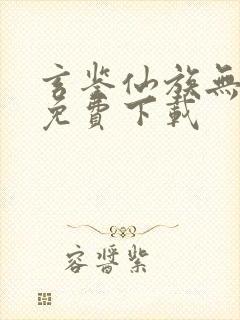 玄鉴仙族無
免費下載
容醬紫